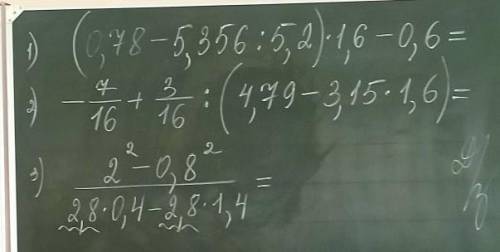 1) (0,78 - 5,356 : 5,2) · 1,6 - 0,6 =
2) - 7/16 + 3/16 : (4,79 - 3,15 · 1,6) =
3) (2² - 0,8²) / (2,8 · 0,4 - 2,8 · 1,4) =
Д/З